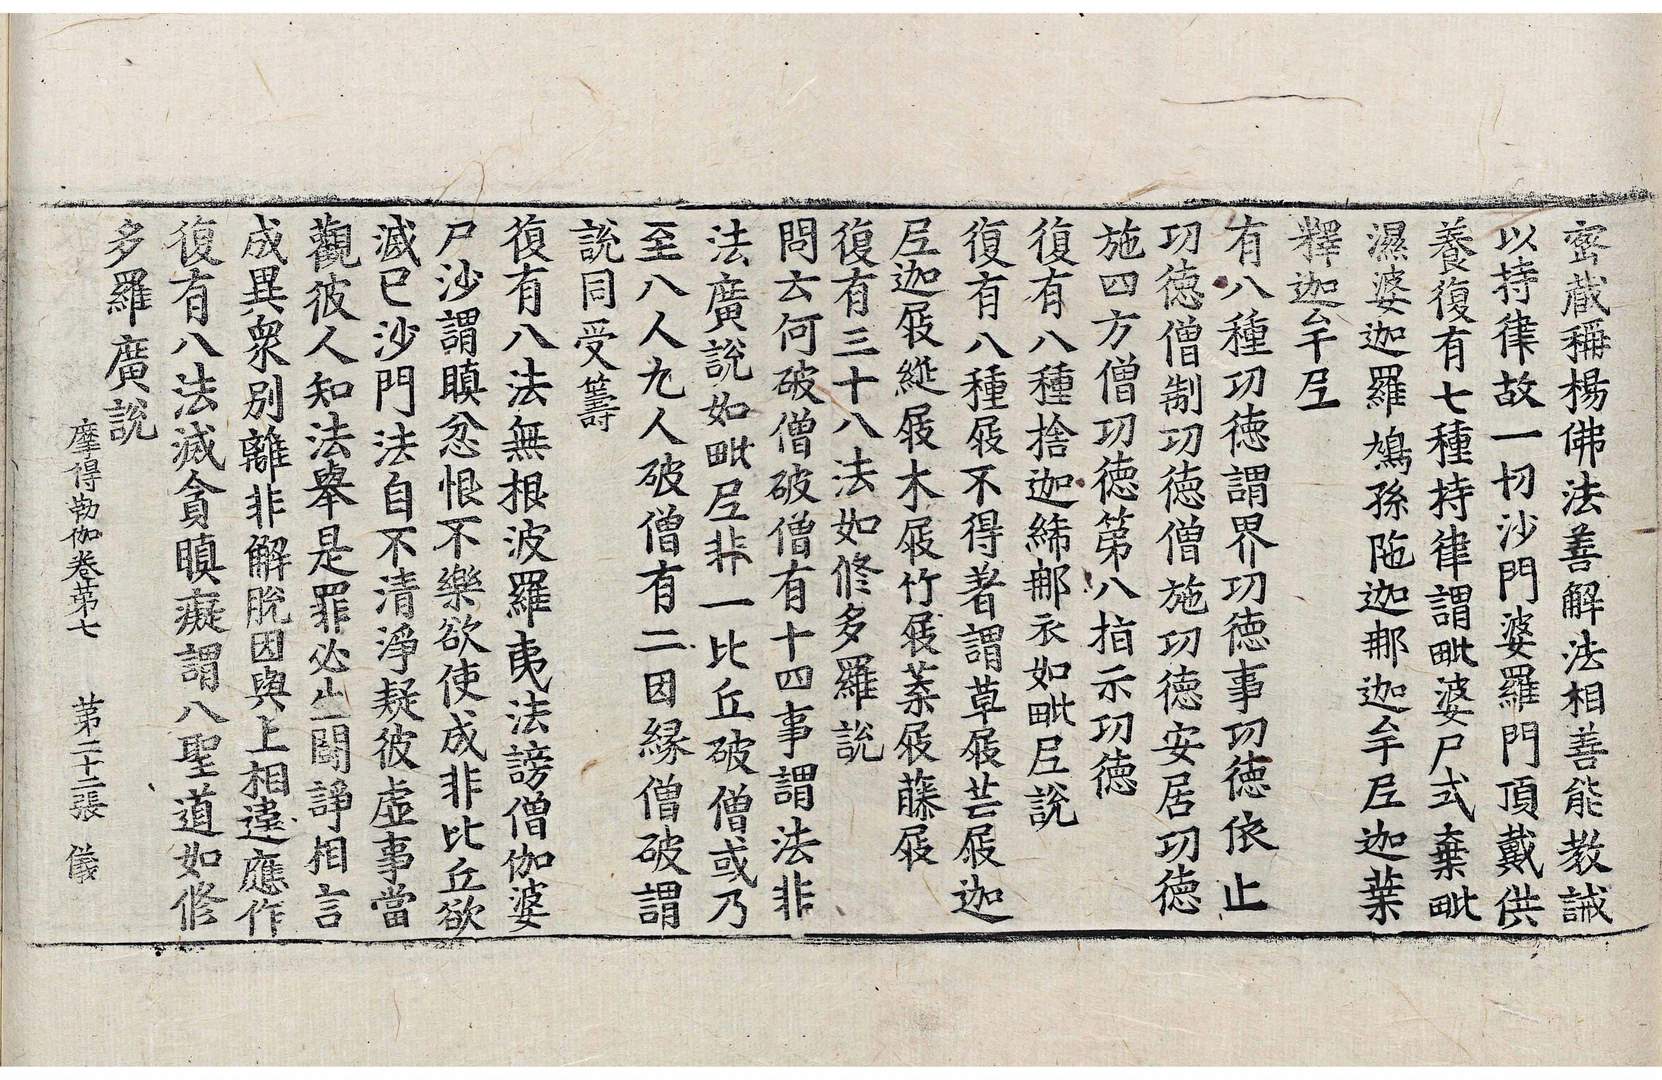 密蔵稱楊佛法善解法相善能教誡
以持律故一切沙門婆羅門頂戴供
養復有七種持律謂毗婆尸式棄毗
濕婆迦羅鳩孫陁迦那迦牟尼迦葉
釋迦牟尼
有八種功徳謂界功徳事功徳依止
功徳僧制功徳僧施功徳安居功徳
施四方僧功徳第八指示功徳
復有八種捨迦絺那衣如毗尼說
復有八種屐不得著謂草屐芒屐迦
尼迦屐縱屐木屐竹屐葇屐藤屐
復有三十八法如修多羅說
問云何破僧破僧有十四事謂法非
法廣說如毗尼非一比丘破僧或乃
至八人九人破僧有二因縁僧破謂
說同受籌
復有八法無根波羅夷法謗僧伽婆
尸沙謂瞋忿恨不樂欲使成非比丘欲
滅已沙門法自不清淨疑彼虛事當
觀彼人知法舉是罪必出鬪諍相言
成異衆別離非解脫因與上相違應作
復有八法滅貪瞋癡謂八聖道如修
多羅廣說
摩得勒伽卷第七　第二十二張　儀